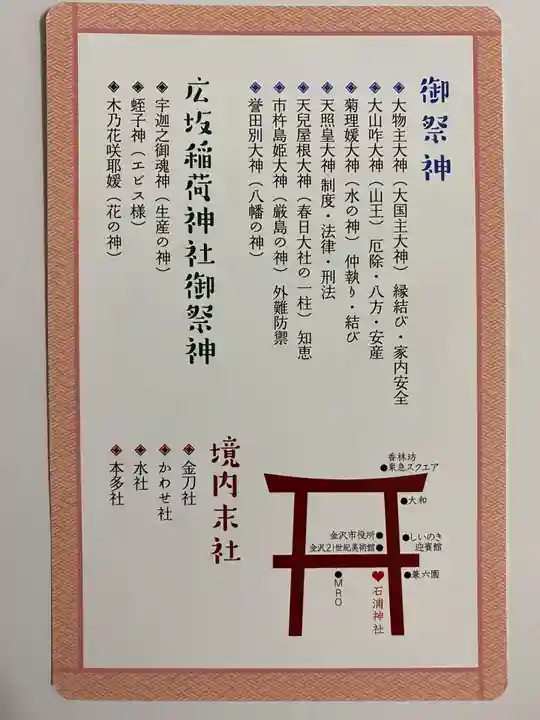 御祭神
大物主大神（大国主大神）縁結び・家内安全
大山咋大神（山王）厄除・八方・安産
菊理媛大神（水の神）仲執り・結び
天照皇大神 制度・法律・刑法
天兒屋根大神（春日大社の一柱）知恵
市杵島姫大神（厳島の神）外難防禦
誉田別大神（八幡の神）
広坂稲荷神社御祭神
宇迦之御魂神（生産の神）
蛭子神（エビス様）
木乃花咲耶媛（花の神）
境内末社
金刀社
かわせ社
水社
本多社
香林坊
東急スクエア
大和
金沢市役所
金沢21世紀美術館
しいのき
迎賓館
兼六園
石浦神社
MRO